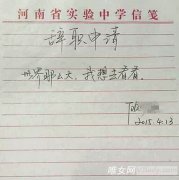 河南省实验中学信笺
辞职申请
世界那么大，我想去看看。
2015.4.13
唯女网